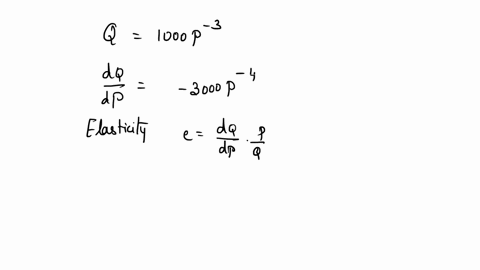 Q = 1000 p^-3
dQ/dP = -3000 p^-4
Elasticity e = dQ/dp · p/Q